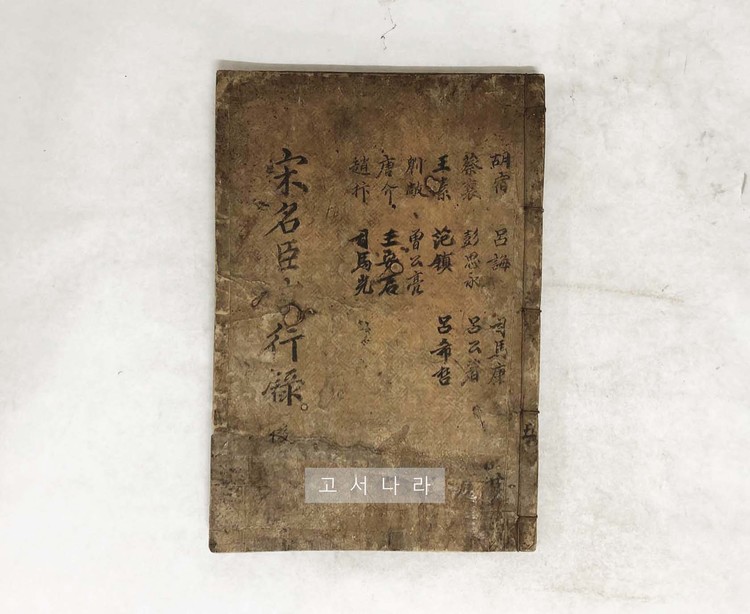 胡宿 呂誨 司馬康
蔡襄 彭思永 呂公著
王素 范鎮 呂希哲
劉敞 曾公亮
唐介 王安石
趙抃 司馬光
宋名臣行錄
고서나라